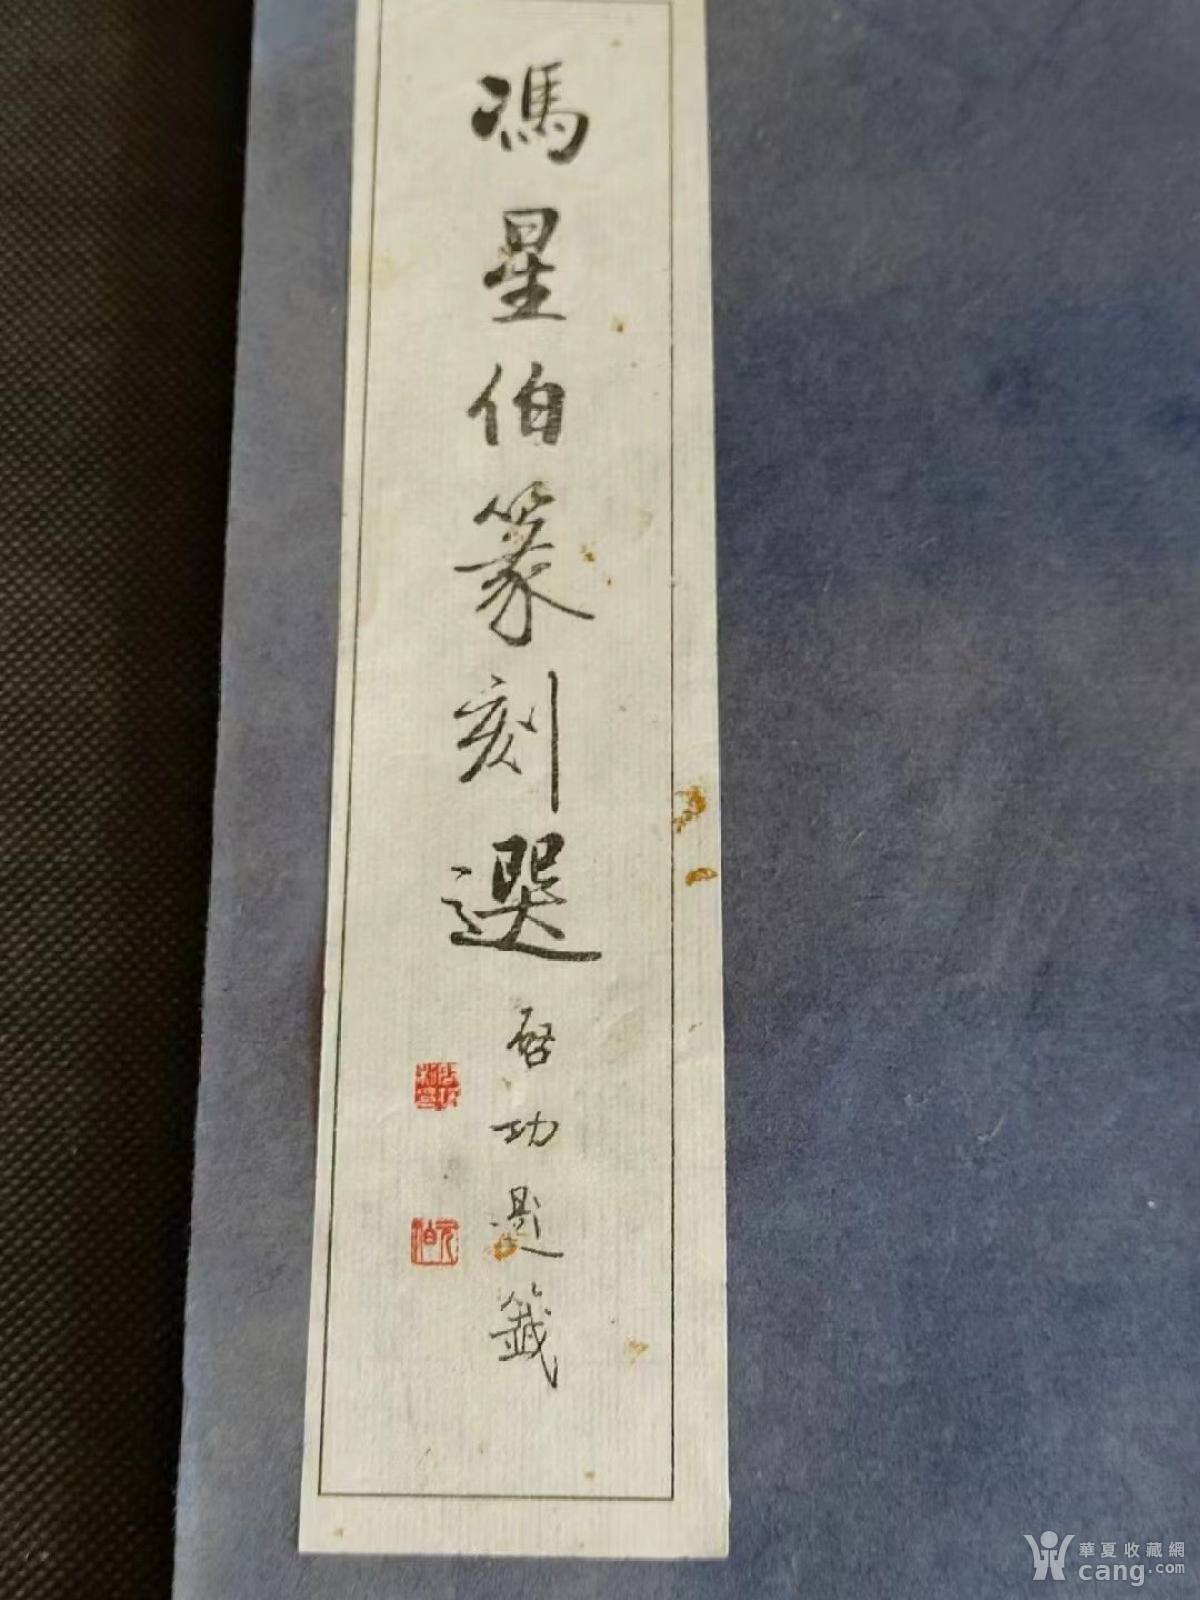 馮星伯篆刻選
啓功題籤
元白
華夏收藏網
cang.com